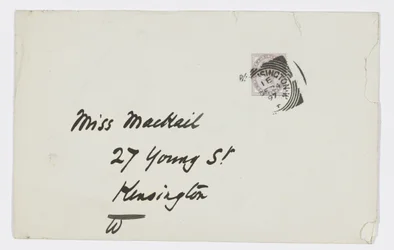 KENSINGTON·W
Miss Mackail
27 Young St
Kensington
W